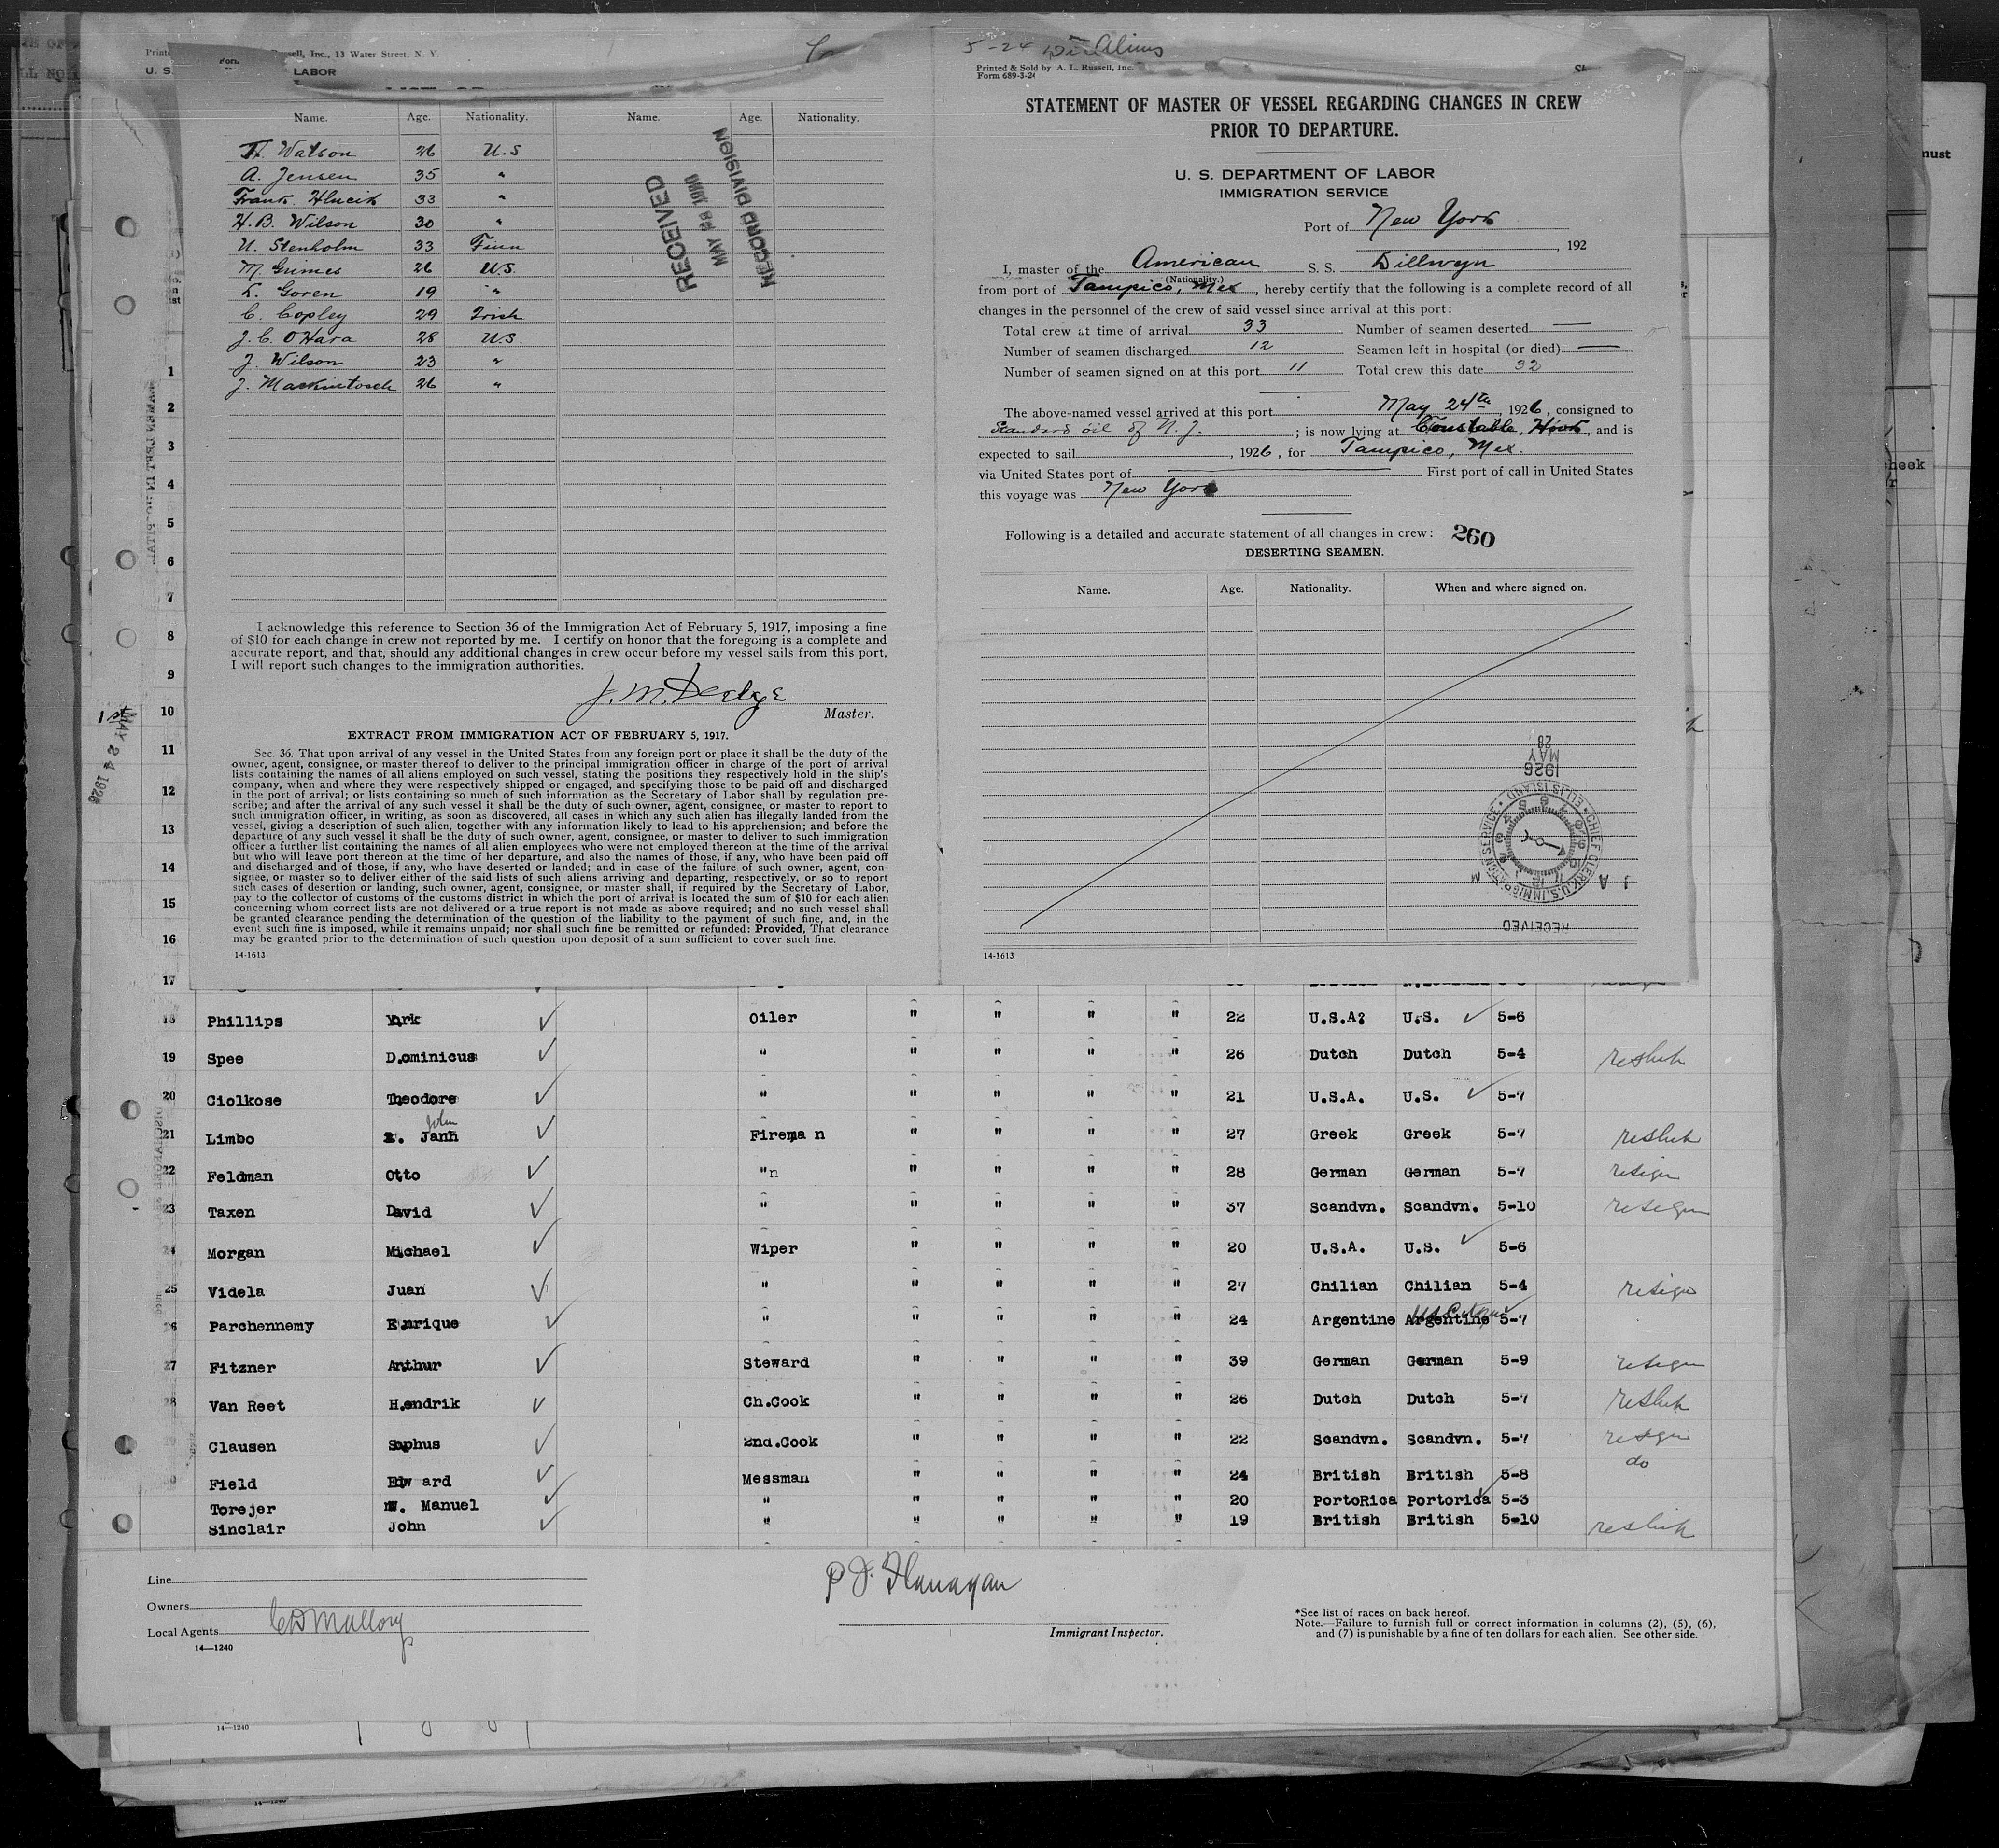 Russell, Inc., 13 Water Street, N. Y.
U. S. LABOR
Name. Age. Nationality. Name. Age. Nationality.
H. Watson 26 U.S
A. Jensen 35 "
Frank Hlucik 33 "
H.B. Wilson 30 "
U. Stenholm 33 Finn
M. Grimes 26 U.S.
K. Goren 19 "
C. Copley 29 Irish
J. C. O'Hara 28 U.S.
J. Wilson 23 "
J. Mackintosch 26 "
RECEIVED
MAY 28
RECORD DIVISION
I acknowledge this reference to Section 36 of the Immigration Act of February 5, 1917, imposing a fine
of $10 for each change in crew not reported by me. I certify on honor that the foregoing is a complete and
accurate report, and that, should any additional changes in crew occur before my vessel sails from this port,
I will report such changes to the immigration authorities.
Master.
EXTRACT FROM IMMIGRATION ACT OF FEBRUARY 5, 1917.
Sec. 36. That upon arrival of any vessel in the United States from any foreign port or place it shall be the duty of the
owner, agent, consignee, or master thereof to deliver to the principal immigration officer in charge of the port of arrival
lists containing the names of all aliens employed on such vessel, stating the positions they respectively hold in the ship's
company, when and where they were respectively shipped or engaged, and specifying those to be paid off and discharged
in the port of arrival; or lists containing so much of such information as the Secretary of Labor shall by regulation pre-
scribe; and after the arrival of any such vessel it shall be the duty of such owner, agent, consignee, or master to report to
such immigration officer, in writing, as soon as discovered, all cases in which any such alien has illegally landed from the
vessel, giving a description of such alien, together with any information likely to lead to his apprehension; and before the
departure of any such vessel it shall be the duty of such owner, agent, consignee, or master to deliver to such immigration
officer a further list containing the names of all alien employees who were not employed thereon at the time of the arrival
but who will leave port thereon at the time of her departure, and also the names of those, if any, who have been paid off
and discharged and of those, if any, who have deserted or landed; and in case of the failure of such owner, agent, con-
signee, or master so to deliver either of the said lists of such aliens arriving and departing, respectively, or so to report
such cases of desertion or landing, such owner, agent, consignee, or master shall, if required by the Secretary of Labor,
pay to the collector of customs of the customs district in which the port of arrival is located the sum of $10 for each alien
concerning whom correct lists are not delivered or a true report is not made as above required; and no such vessel shall
be granted clearance pending the determination of the question of the liability to the payment of such fine, and, in the
event such fine is imposed, while it remains unpaid; nor shall such fine be remitted or refunded: Provided, That clearance
may be granted prior to the determination of such question upon deposit of a sum sufficient to cover such fine.
14-1613
5-24
Printed & Sold by A. L. Russell, Inc.
Form 689-3-24
STATEMENT OF MASTER OF VESSEL REGARDING CHANGES IN CREW
PRIOR TO DEPARTURE.
U. S. DEPARTMENT OF LABOR
IMMIGRATION SERVICE
Port of New York
, 192
I, master of the American S. S. Dillwyn
(Nationality.)
from port of Tampico, Mex, hereby certify that the following is a complete record of all
changes in the personnel of the crew of said vessel since arrival at this port:
Total crew at time of arrival 33 Number of seamen deserted —
Number of seamen discharged 12 Seamen left in hospital (or died) —
Number of seamen signed on at this port 11 Total crew this date 32
The above-named vessel arrived at this port May 24th, 1926, consigned to
Standard oil of N. J. ; is now lying at Constable Hook, and is
expected to sail , 1926, for Tampico, Mex.
via United States port of — First port of call in United States
this voyage was New York
Following is a detailed and accurate statement of all changes in crew: 260
DESERTING SEAMEN.
Name. Age. Nationality. When and where signed on.
RECEIVED
CHIEF CLERK, U.S. IMMIGRATION SERVICE • ELLIS ISLAND
1926
MAY
28
14-1613
1
2
3
4
5
6
7
8
9
10
11
12
13
14
15
16
17
1st
MAY 24 1926
18 Phillips York Oiler " " " " 22 U.S.A? U.S. 5-6
19 Spee Dominicus " " " " " 26 Dutch Dutch 5-4 reship
20 Ciolkose Theodore " " " " " 21 U.S.A. U.S. 5-7
John
21 Limbo Janh Firema n " " " " 27 Greek Greek 5-7 reship
22 Feldman Otto "n " " " " 28 German German 5-7 resign
23 Taxen David " " " " " 37 Scandvn. Scandvn. 5-10 resign
24 Morgan Michael Wiper " " " " 20 U.S.A. U.S. 5-6
25 Videla Juan " " " " " 27 Chilian Chilian 5-4 resign
26 Parchennemy Enrique " " " " " 24 Argentine Argentine 5-7
27 Fitzner Arthur Steward " " " " 39 German German 5-9 resign
28 Van Reet Hendrik Ch.Cook " " " " 26 Dutch Dutch 5-7 reship
Clausen Sophus 2nd.Cook " " " " 22 Scandvn. Scandvn. 5-7 resign
Field Edw ard Messman " " " " 24 British British 5-8 do
Torejer Manuel " " " " " 20 PortoRica Portorica 5-3
Sinclair John " " " " " 19 British British 5-10 reship
Line
Owners
Local Agents CD Mallory
14—1240
P J. Flanagan
Immigrant Inspector.
*See list of races on back hereof.
Note.—Failure to furnish full or correct information in columns (2), (5), (6),
and (7) is punishable by a fine of ten dollars for each alien. See other side.
14—1240